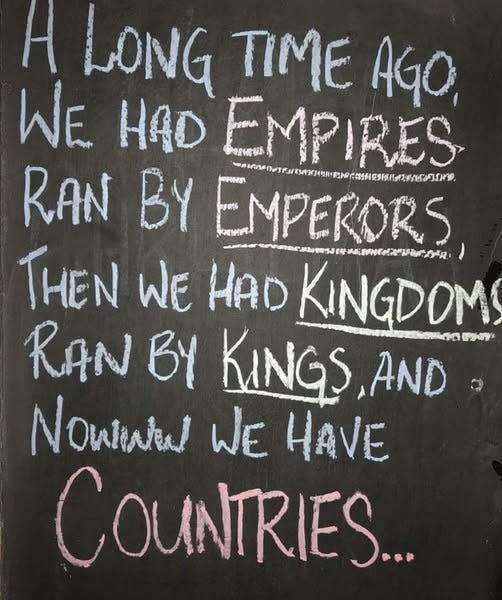 A LONG TIME AGO,
WE HAD EMPIRES
RAN BY EMPERORS,
THEN WE HAD KINGDOMS
RAN BY KINGS, AND
NOWWWW WE HAVE
COUNTRIES...